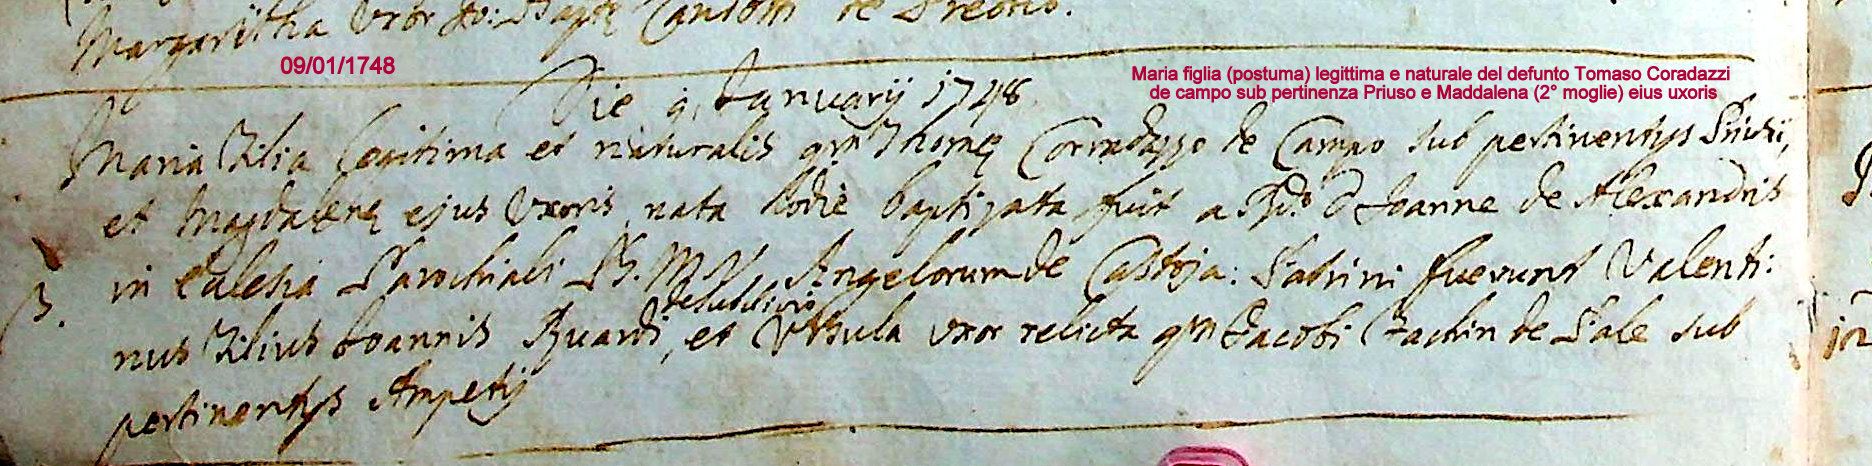 Margaritha Uxor Jo: Bapte Candotti de Preono.
09/01/1748
Maria figlia (postuma) legittima e naturale del defunto Tomaso Coradazzi
de campo sub pertinenza Priuso e Maddalena (2° moglie) eius uxoris
Die 9, January 1748
Maria Filia legitima et naturalis qm Thomę Corradazzo de Campo sub pertinentys Priusij,
et Magdalenę ejus Uxoris, nata hodie baptizata fuit a Rdo D Joanne de Alexandris
in Eclesia Parochiali B. M. V. Angelorum de Castoja: Patrini fuerunt Valenti:
3.
nus Filius Joannis Buardi, et Ursula uxor relicta qm Jacobi Zachin de Pale sub
pertinentys Ampetij
in